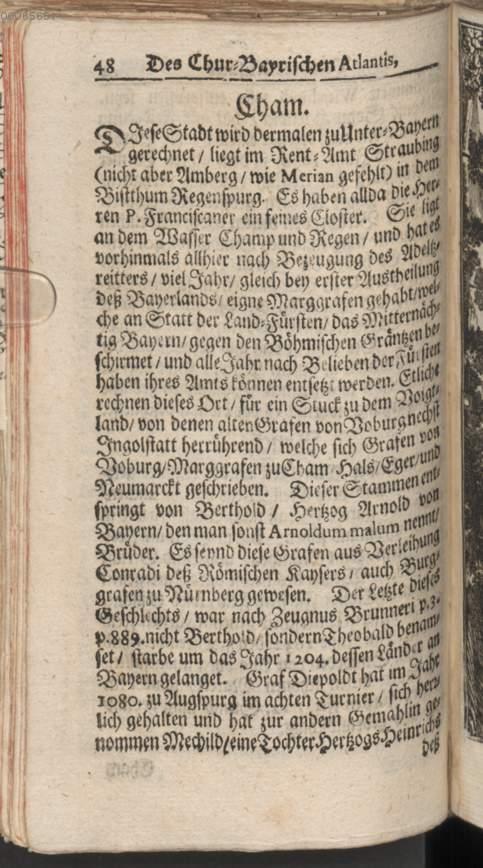 48 Des Chur-Bayrischen Atlantis,
Cham.
DIese Stadt wird dermalen zu Unter-Bayern
gerechnet / liegt im Rent-Amt Straubing
(nicht aber Amberg / wie Merian gefehlt) in dem
Bistthum Regenspurg. Es haben allda die Her-
ren P. Franciscaner ein feines Closter. Sie ligt
an dem Wasser Champ und Regen / und hat es
vorhinmals allhier nach Bezeugung des Adeltz-
reitters / viel Jahr / gleich bey erster Austheilung
deß Bayerlands / eigne Marggrafen gehabt / wel-
che an Statt der Land-Fürsten / das Mitternäch-
tig Bayern / gegen den Böhmischen Gräntzen be-
schirmet / und alle Jahr nach Belieben der Fürsten
haben ihres Amts können entsetzt werden. Etliche
rechnen dieses Ort / für ein Stuck zu dem Voigt-
land / von denen alten Grafen von Voburg nechst
Ingolstatt herrührend / welche sich Grafen von
Voburg / Marggrafen zu Cham / Hals / Eger / und
Neumarckt geschrieben. Dieser Stammen ent-
springt von Berthold / Hertzog Arnold von
Bayern / den man sonst Arnoldum malum nennt /
Brüder. Es seynd diese Grafen aus Verleihung
Conradi deß Römischen Kaysers / auch Burg-
grafen zu Nürnberg gewesen. Der Letzte dieses
Geschlechts / war nach Zeugnus Brunneri p. 3.
p. 889. nicht Berthold / sondern Theobald benam-
set / starbe um das Jahr 1204. dessen Länder an
Bayern gelanget. Graf Diepoldt hat im Jahr
1080. zu Augspurg im achten Turnier / sich herr-
lich gehalten und hat zur andern Gemahlin ge-
nommen Mechild / eine Tochter Hertzogs Heinrichs
deß